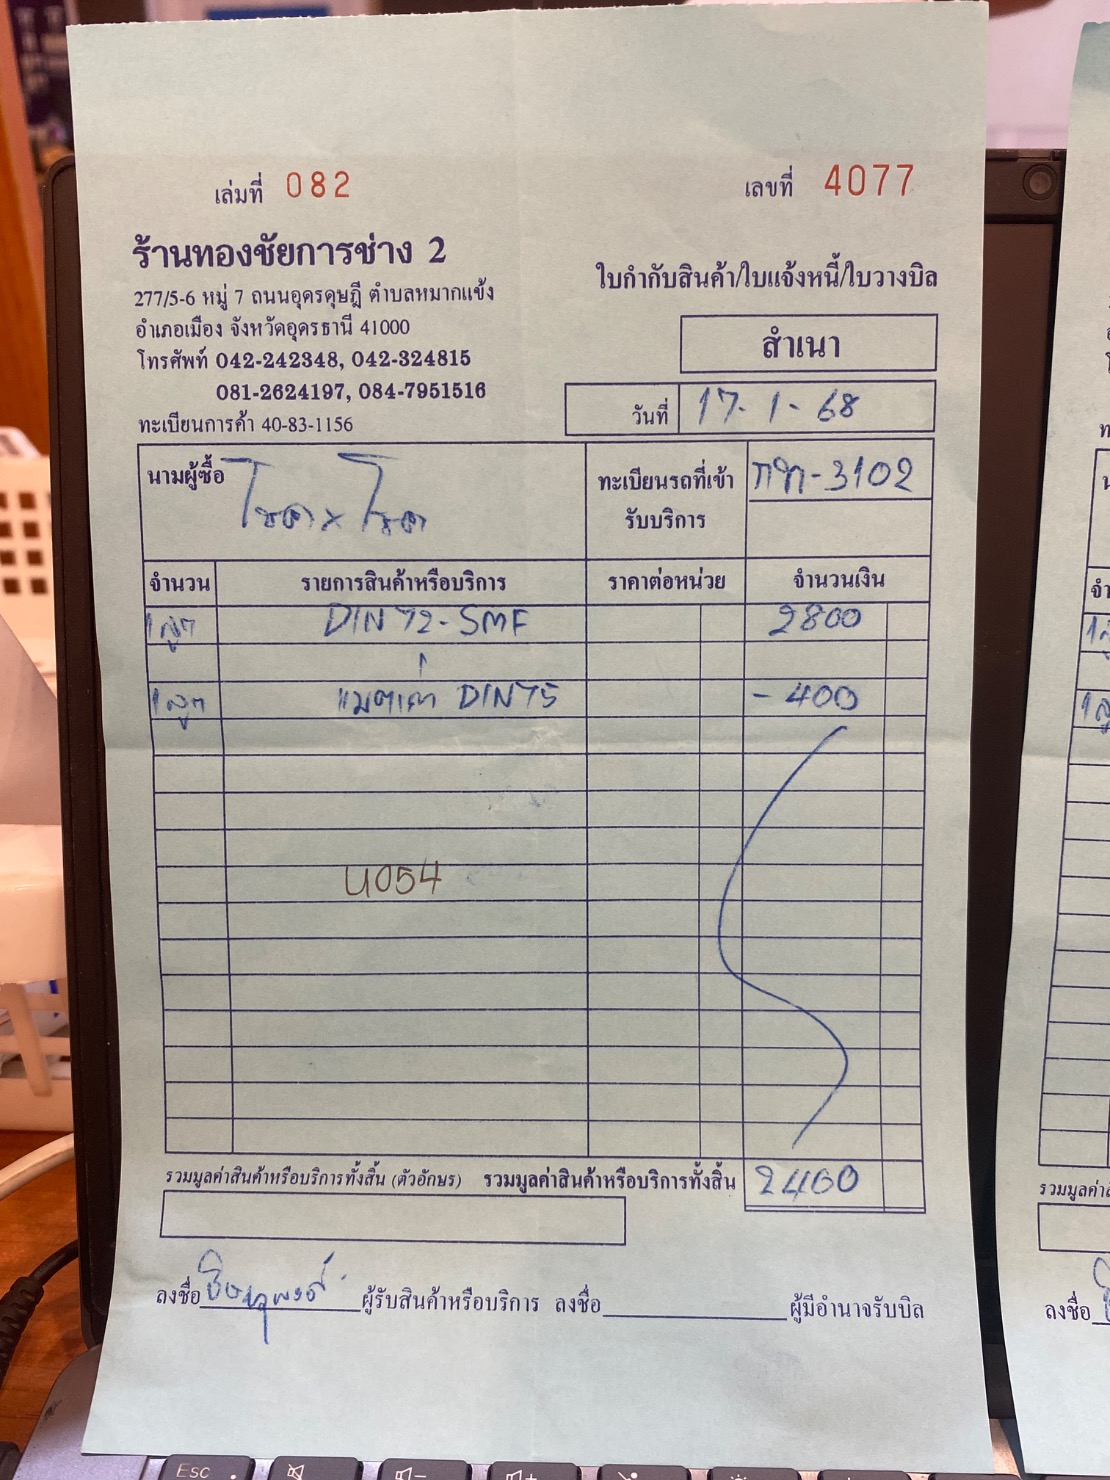 เล่มที่ 082
เลขที่ 4077
ร้านทองชัยการช่าง 2
277/5-6 หมู่ 7 ถนนอุดรดุษฎี ตำบลหมากแข้ง
อำเภอเมือง จังหวัดอุดรธานี 41000
โทรศัพท์ 042-242348, 042-324815
081-2624197, 084-7951516
ทะเบียนการค้า 40-83-1156
ใบกำกับสินค้า/ใบแจ้งหนี้/ใบวางบิล
สำเนา
วันที่ 17-1-68
นามผู้ซื้อ
ทะเบียนรถที่เข้ารับบริการ 3102
จำนวน รายการสินค้าหรือบริการ ราคาต่อหน่วย จำนวนเงิน
1 ลูก DIN 72-SMF 2800
1 ลูก DIN 75 -400
U054
รวมมูลค่าสินค้าหรือบริการทั้งสิ้น (ตัวอักษร) รวมมูลค่าสินค้าหรือบริการทั้งสิ้น 2400
ลงชื่อ ผู้รับสินค้าหรือบริการ ลงชื่อ ผู้มีอำนาจรับบิล
รวมมูลค่า
ลงชื่อ